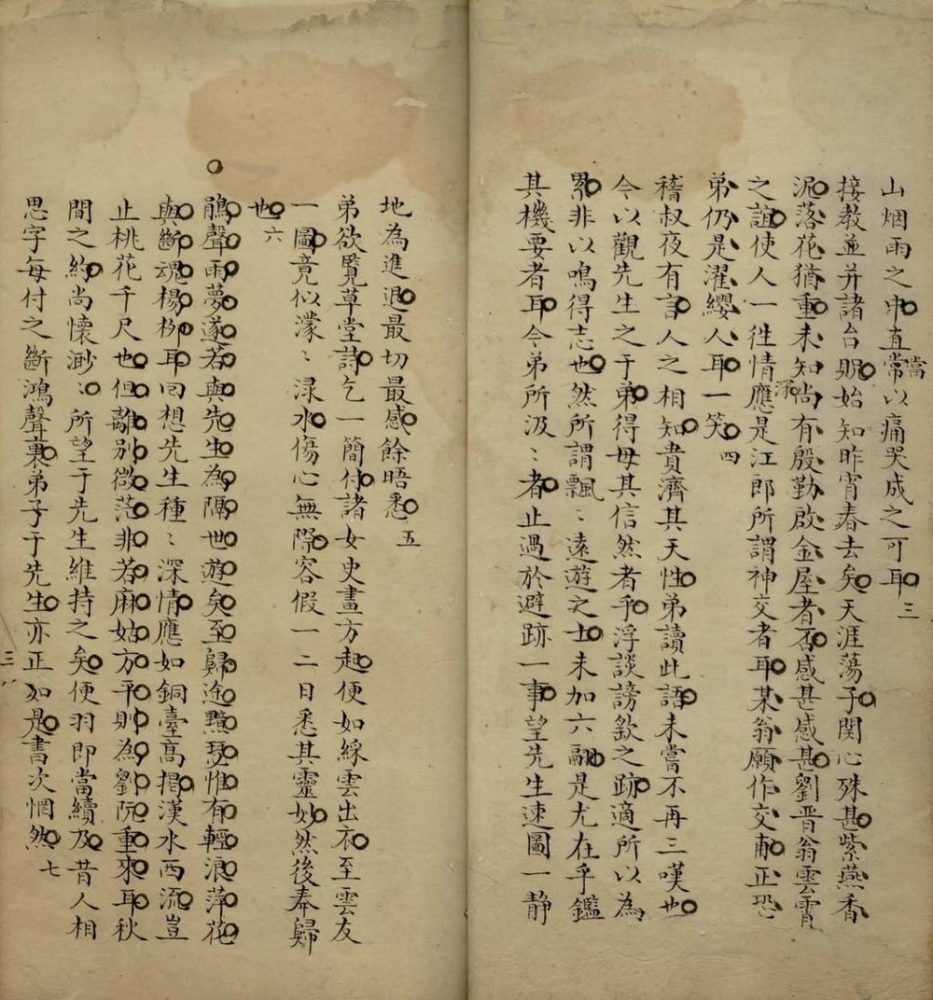 山烟雨之中直常以痛哭成之可耳三
當
接教並幷諸台貺始知昨宵春去矣天涯蕩子関心殊甚紫燕香
泥落花猶重未知尚有殷勤啟金屋者否感甚感甚劉晋翁雲霄
之誼使人一徃情深應是江郎所謂神交者耳某翁願作交甫正恐
弟仍是濯纓人耳一笑四
稽叔夜有言人之相知貴濟其天性弟讀此語未嘗不再三嘆也
今以觀先生之于弟得毋其信然者乎浮談謗欸之跡適所以為
累非以鳴得志也然所謂飄〻遠遊之士未加六翮是尤在乎鑑
其機要者耳今弟所汲〻者止過於避跡一事望先生速圖一静
地為進退最切最感餘晤悉五
弟欲覽草堂詩乞一簡付諸女史畫方起便如綵雲出衣至雲友
一圖竟似濛〻渌水傷心無際容假一二日悉其靈妙然後奉歸
也六
鵑聲雨夢遂若與先生為隔世遊矣至歸途黯瑟惟有輕浪萍花
與斷魂楊栁耳囬想先生種〻深情應如銅臺高揭漢水西流豈
止桃花千尺也但離别微茫非若麻姑方平則為劉阮重來耳秋
間之約尚懷渺〻所望于先生維持之矣便羽即當續及昔人相
思字每付之斷鴻聲裏弟子于先生亦正如是書次惘然七
三